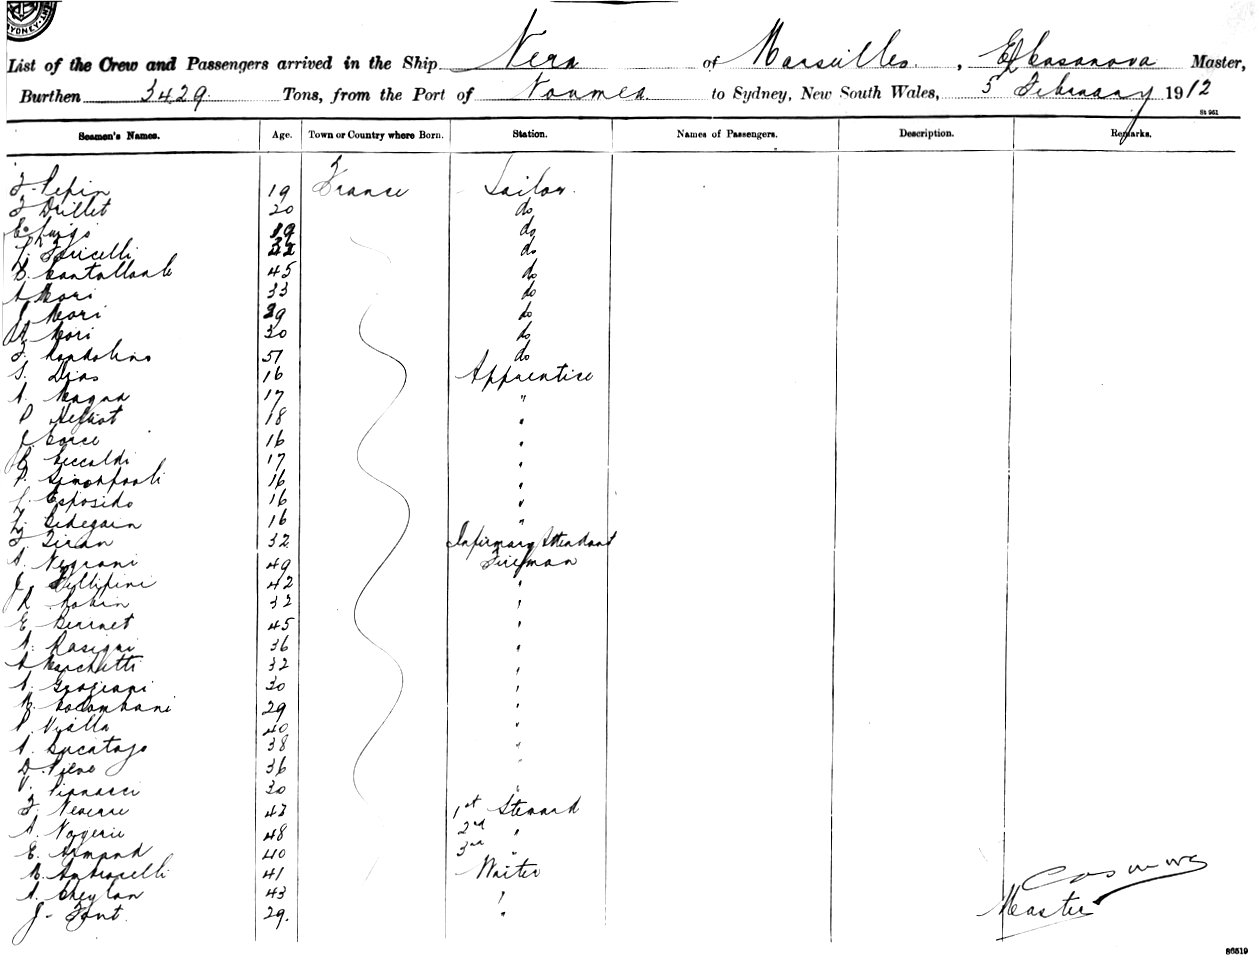 SYDNEY
List of the Crew and Passengers arrived in the Ship Nera of Marseilles, E Casanova Master,
Burthen 3429 Tons, from the Port of Noumea to Sydney, New South Wales, 5 February 1912
St 961
Seamen's Names. Age. Town or Country where Born. Station. Names of Passengers. Description. Remarks.
F. Pepin 19 France Sailor.
F Drillet 20 do
E. Luigi 19 do
Foricelli do
45 do
A Mori 33 do
J Mori 29 do
Mori 30 do
F. 51 do
S. Dias 16 Apprentice
A. Magna 17 "
P 18 "
J. 16 "
Ceccaldi 17 "
P. Simonpaoli 16 "
Esposido 16 "
L. Bidegain 16 "
F. Tiran 32 Infirmary Attendant
A. Negroni 49 Fireman
J. Fillipini 42 "
R Robin 32 "
E Bearnet 45 "
A. Rasigni 36 "
A Marchetti 32 "
A. Graziani 30 "
Colombani 29 "
P. Vialla 40 "
A. Lucatojo 38 "
D. Pieve 36 "
V. 30 "
F. 43 1st Steward
A. Nogerie 48 2nd "
E. Armand 40 3rd "
Antonelli 41 Waiter
A. Cheylan 43 "
J. Font 29. "
Casanova
Master
86519